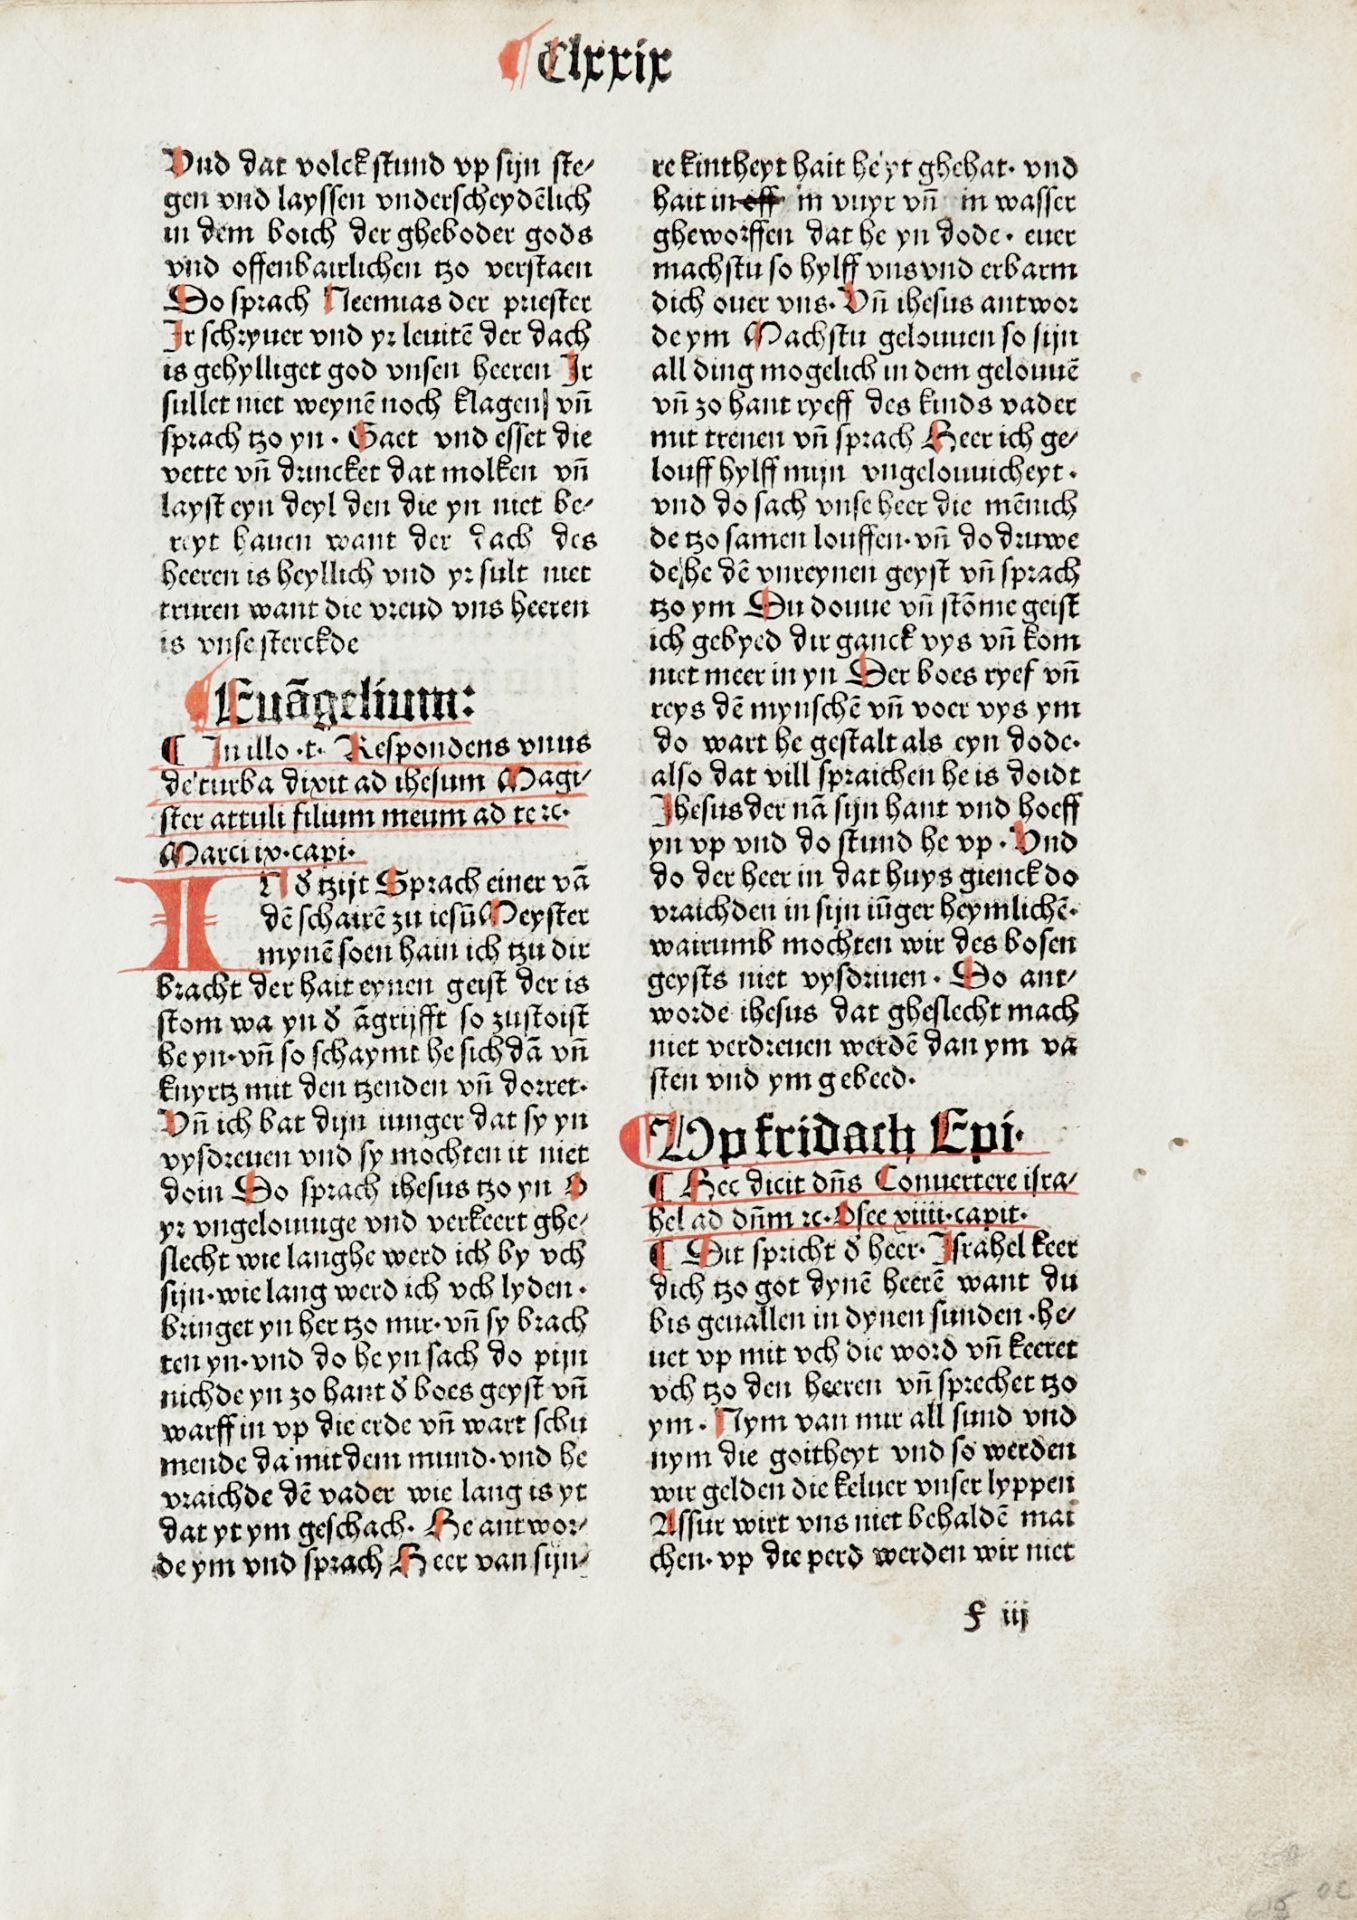 Clxxix
Vnd dat volck stund vp sijn ste⸗
gen vnd layssen vnderscheydēlich
in dem boich der gheboder gods
vnd offenbairlichen tzo verstaen
Do sprach Neemias der priester
Ir schryuer vnd yr leuitē der dach
is gehylliget god vnsen heeren Ir
sullet niet weynē noch klagen vn̄
sprach tzo yn · Gaet vnd esset die
vette vn̄ drincket dat molken vn̄
layst eyn deyl den die yn niet be⸗
reyt hauen want der dach des
heeren is heyllich vnd yr sult niet
truren want die vreud vns heeren
is vnse sterckde
Euāgelium:
¶ In illo ·t· Respondens vnus
de turba dixit ad ihesum Magi⸗
ster attuli filium meum ad te ⁊c·
Marci ix·capi·
IN d̄ tzijt Sprach einer vā
dē schairē zu iesū Meyster
mynē soen hain ich tzu dir
bracht der hait eynen geist der is
stom wa yn d̄ āgrijfft so zustoist
he yn·vn̄ so schaymt he sich dā vn̄
knyrtz mit den tzenden vn̄ dorret·
Vn̄ ich bat dijn iunger dat sy yn
vysdreuen vnd sy mochten it niet
doin Do sprach ihesus tzo yn O
yr vngelouuige vnd verkeert ghe⸗
slecht wie langhe werd ich by vch
sijn·wie lang werd ich vch lyden ·
bringet yn her tzo mir·vn̄ sy brach
ten yn·vnd do he yn sach do pijn
nichde yn zo hant d̄ boes geyst vn̄
warff in vp die erde vn̄ wart schu
mende da mit dem mund·vnd he
vraichde dē vader wie lang is yt
dat yt ym geschach· He antwor⸗
de ym vnd sprach Heer van sijn⸗
re kintheyt hait he yt ghehat· vnd
hait in eff in vuyr vn̄ in wasser
gheworffen dat he yn dode· euer
machstu so hylff vns vnd erbarm
dich ouer vns· Vn̄ ihesus antwor
de ym Machstu gelouuen so sijn
all ding mogelich in dem gelouuē
vn̄ zo hant ryeff des kinds vader
mit trenen vn̄ sprach Heer ich ge⸗
louff hylff mijn vngelouuicheyt ·
vnd do sach vnse heer die mēnich
de tzo samen louffen·vn̄ do druwe
de he dē vnreynen geyst vn̄ sprach
tzo ym Du douue vn̄ stōme geist
ich gebyed dir ganck vys vn̄ kom
niet meer in yn Der boes ryef vn̄
reys dē mynschē vn̄ voer vys ym
do wart he gestalt als eyn dode·
also dat vill spraichen he is doidt
Ihesus der nā sijn hant vnd hoeff
yn vp vnd do stund he vp· Vnd
do der heer in dat huys gienck do
vraichden in sijn iūger heymlichē·
wairumb mochten wir des bosen
geysts niet vysdriuen · Do ant⸗
worde ihesus dat gheslecht mach
niet verdreuen werdē dan ym va
sten vnd ym gebeed·
Vp fridach Epi·
¶ Hec dicit dn̄s Conuertere isra⸗
hel ad dn̄m ⁊c· Osee xiiii·capit·
¶ Dit spricht d̄ heer· Israhel keer
dich tzo got dynē heerē want du
bis geuallen in dynen sunden ·he⸗
uet vp mit vch die word vn̄ keeret
vch tzo den heeren vn̄ sprechet tzo
ym· Nym van mir all sund vnd
nym die goitheyt vnd so werden
wir gelden die keluer vnser lyppen
Assur wirt vns niet behaldē mai
chen· vp die perd werden wir niet
f iij